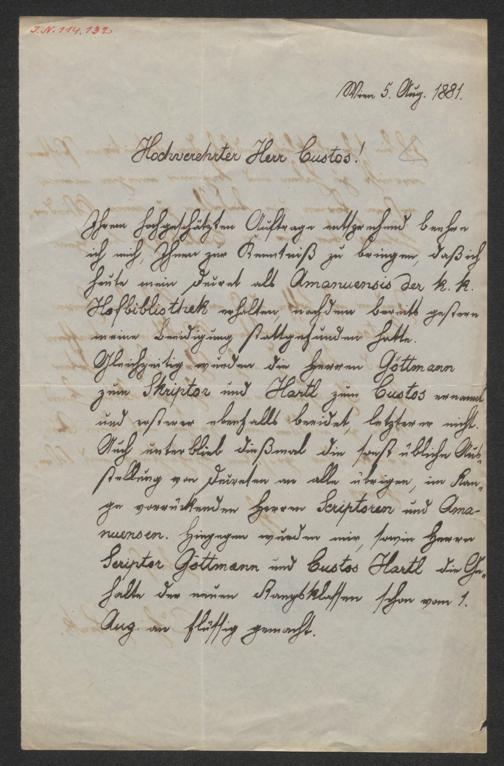 I.N. 114.132
Wien 5. Aug. 1881.
Hochverehrter Herr Custos!
Ihrem hochgeschätzten Auftrage entsprechend beehre
ich mich, Ihnen zur Kenntniß zu bringen, daß ich
heute mein Decret als Amanuensis der k. k.
Hofbibliothek erhalten, nachdem bereits gestern
meine Beeidigung stattgefunden hatte.
Gleichzeitig wurden die Herren Göttmann
zum Skriptor und Hartl zum Custos ernannt
und ersterer ebenfalls beeidet, letzterer nicht.
Auch unterblieb dießmal die sonst übliche Aus-
stellung von Decreten an alle übrigen, im Ran-
ge vorrückenden Herren Scriptoren und Ama-
nuensen. Hingegen wurden mir, sowie Herrn
Scriptor Göttmann und Custos Hartl die Ge-
halte der neuen Rangsklassen schon vom 1.
Aug. an flüssig gemacht.